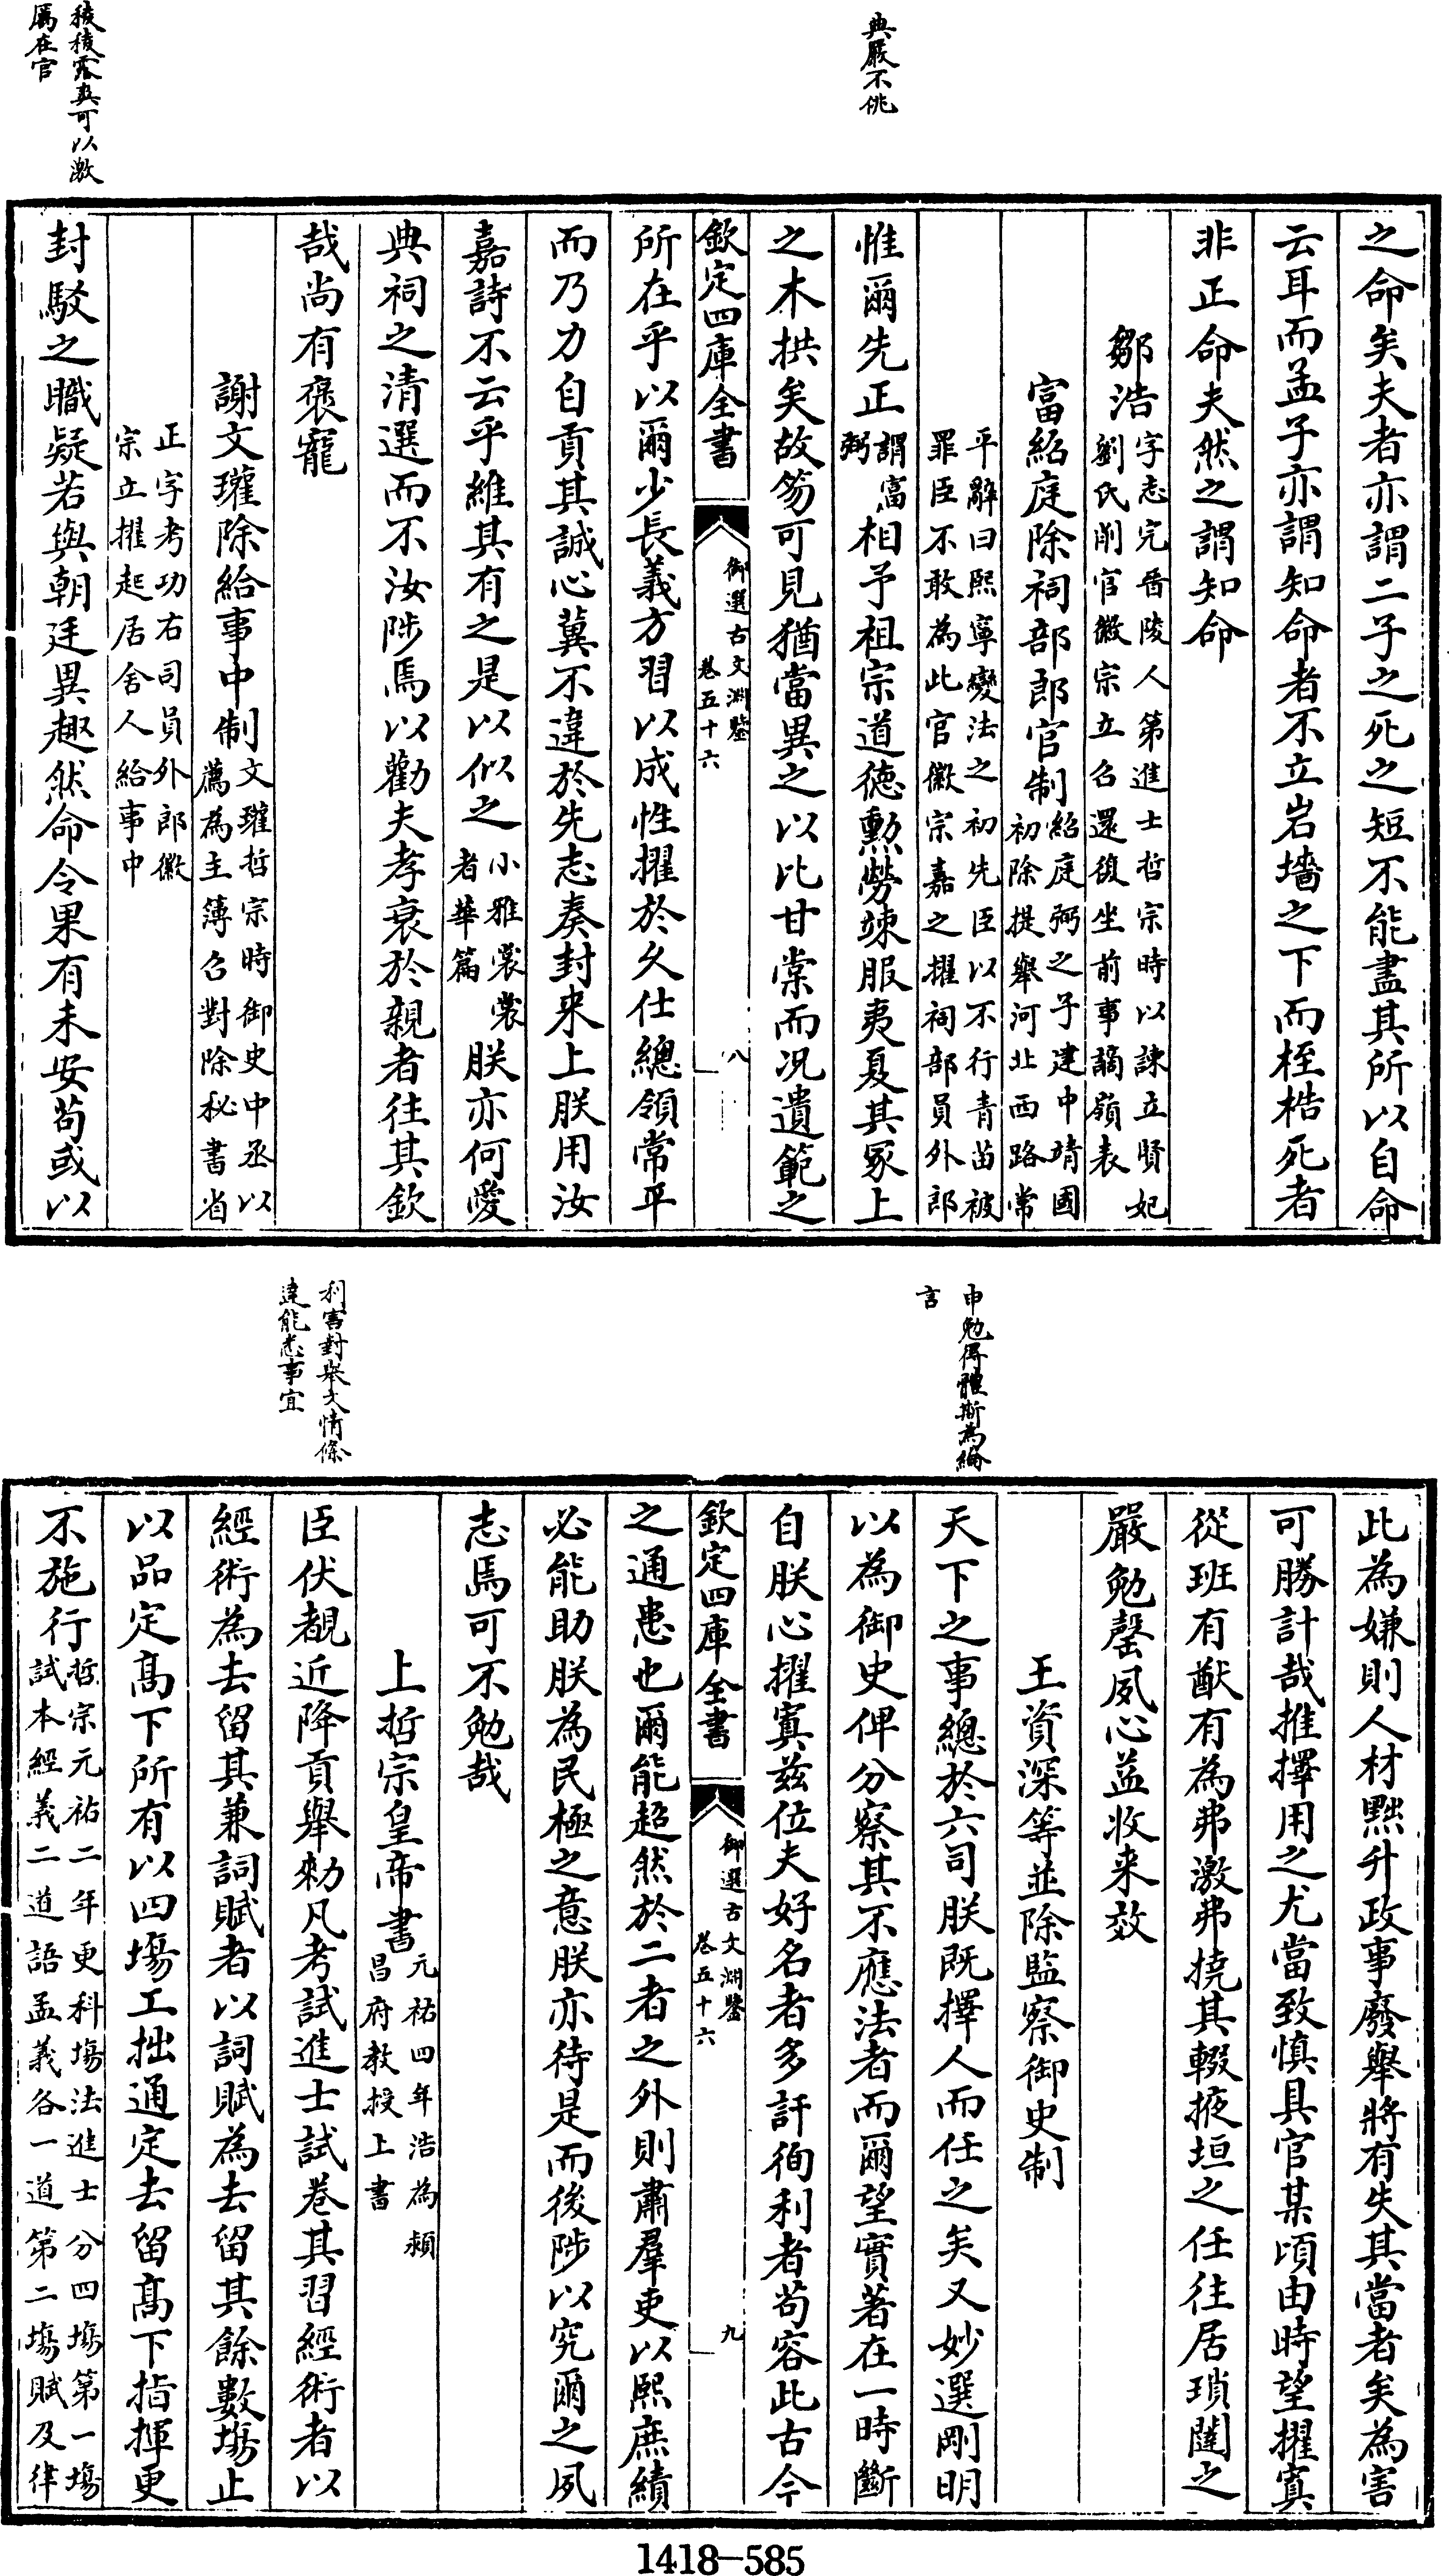 典嚴不佻
稜稜霜氣可以激
厲在官
之命矣夫者亦謂二子之死之短不能盡其所以自命
云耳而孟子亦謂知命者不立岩墻之下而桎梏死者
非正命夫然之謂知命
鄒浩字志完晉陵人第進士哲宗時以諫立賢妃
劉氏削官徽宗立召還復坐前事謫嶺表
富紹庭除祠部郎官制紹庭弼之子建中靖國
初除提舉河北西路常
平辭曰熙寧變法之初先臣以不行青苗被
罪臣不敢為此官徽宗嘉之擢祠部員外郎
惟爾先正謂富弼相予祖宗道徳勲勞竦服夷夏其冢上
之木拱矣故笏可見猶當異之以比甘棠而况遺範之
欽定四庫全書
御選古文淵鑒
卷五十六
八
所在乎以爾少長義方習以成性擢於久仕總領常平
而乃力自貢其誠心冀不違於先志奏封来上朕用汝
嘉詩不云乎維其有之是以似之小雅裳裳者華篇朕亦何愛
典祠之清選而不汝陟焉以勸夫孝衰於親者往其欽
哉尚有褒寵
謝文瓘除給事中制文瓘哲宗時御史中丞以
薦為主簿召對除秘書省
正字考功右司員外郎徽
宗立擢起居舍人給事中
封駁之職疑若與朝廷異趣然命令果有未安苟或以
申勉得體斯為綸
言
利害封舉文情條
達能悉事宜
此為嫌則人材黜升政事廢舉將有失其當者矣為害
可勝計哉推擇用之尤當致慎具官某頃由時望擢寘
從班有猷有為弗激弗撓其輟掖垣之任往居瑣闥之
嚴勉罄夙心益收来效
王資深等並除監察御史制
天下之事總於六司朕既擇人而任之矣又妙選剛明
以為御史俾分察其不應法者而爾望實著在一時斷
自朕心擢寘兹位夫好名者多訐徇利者苟容此古今
欽定四庫全書
御選古文淵鑒
卷五十六
九
之通患也爾能超然於二者之外則肅羣吏以熙庶績
必能助朕為民極之意朕亦待是而後陟以究爾之夙
志焉可不勉哉
上哲宗皇帝書元祐四年浩為潁
昌府教授上書
臣伏覩近降貢舉勅凡考試進士試卷其習經術者以
經術為去留其兼詞賦者以詞賦為去留其餘數塲止
以品定髙下所有以四塲工拙通定去留髙下指揮更
不施行哲宗元祐二年更科塲法進士分四塲第一塲
試本經義二道語孟義各一道第二塲賦及律
1418—585